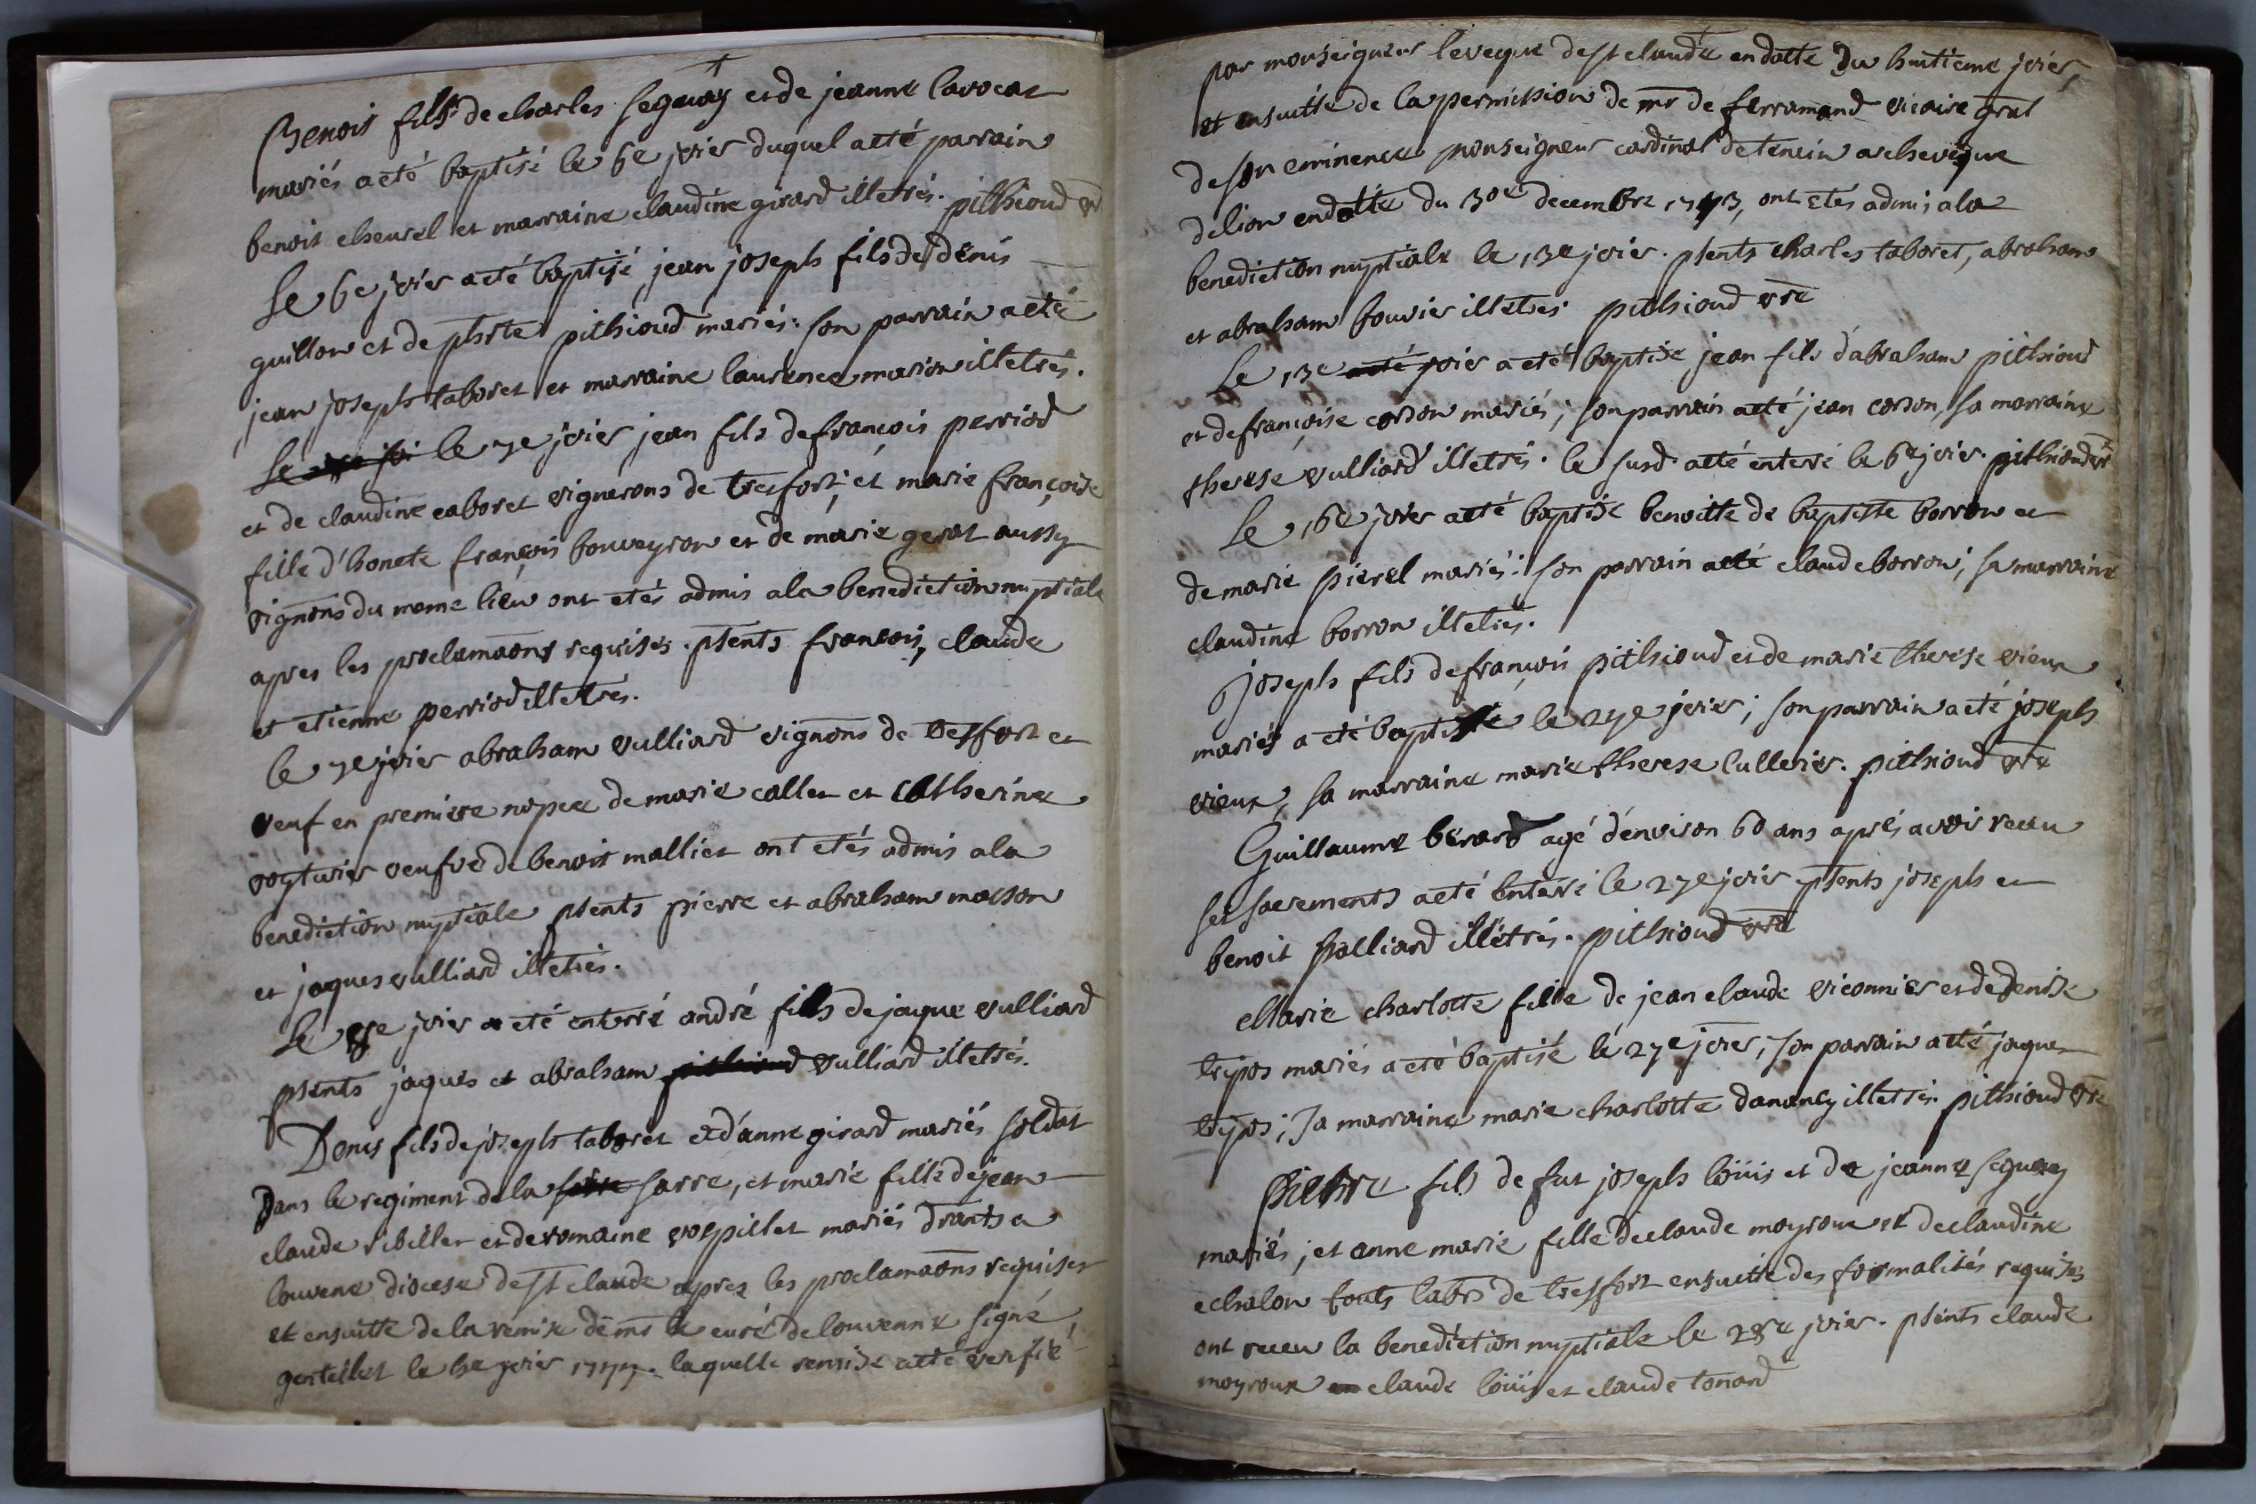 Benoit fils de charles seguay et de jeanne lavocat
mariés a eté baptisé le 6e jvier duquel a eté parrain
benoit cheurel et marraine claudine girard illetrés. pithioud
Le 6e jvier a eté baptisé jean joseph fils de denis
guillon et de phrte pithioud mariés: son parrain a eté
jean joseph taboret et marraine laurence marion illetrés.
Le le 7e jvier jean fils de françois perriod
et de claudine caboret vignerons de tresfort; et marie françoise
fille d'honete françois bouveyron et de marie gerat aussy
vignons du meme lieu ont etés admis a la benediction nuptiale
apres les proclamaons requises. psents francois, claude
et etienne perriod illetrés.
le 7e jvier abraham vulliard vignons de tresfort et
veuf en premiere nopce de marie callet et catherine
voyturier veufve de benoit mallier ont etés admis a la
benediction nuptiale psents pierre et abraham masson
et jaques vulliard illetrés.
Le jvier a eté enterré andré fils de jaque vulliard
psents jaques et abraham pithioud vulliard illetrés.
Denis fils de joseph taboret et d'anne girard mariés soldat
Dans le regiment de la sarre, et marie fille de jean
claude ribillet et de romaine vorpillet mariés a
louvene diocese de st claude apres les proclamaons requises
et ensuitte de la remise de mr le curé de louvenne signé
gentillet le jvier laquelle remise a eté verifié
par monseigneur leveque de st claude en datte Du huitieme jvier,
et ensuitte de la permission de mr de ferramand vicaire gral
de son eminence monseigneur cardinal de tencin archeveque
de lion en datte du 30e decembre 1743, ont etés admis a la
benediction nuptiale le 13e jvier. psents charles taboret, abraham
et abraham bouvier illetrés. pithioud vre
Le 13e acté jvier a eté baptise jean fils d'abraham pithioud
et de françoise corson mariés; son parrain a eté jean corson, sa marraine
therese vulliard illetrés. le susd. a eté enterré le 6e jvier. pithioud vre
Le 16e jvier a eté baptise benoitte de baptiste borron et
de marie pierel mariés: son parrain a eté claude borron; sa marraine
claudine borron illetrés.
joseph fils de françois pithioud et de marie therese vieux
mariés a eté baptisé le 27e jvier; son parrain a eté joseph
vieux, sa marraine marie therese cullerier. pithioud vre
Guillaume berard agé d'environ 60 ans aprés avoir receu
ses sacrements a eté enterré le 27e jvier psents joseph et
benoit palliard illetrés. pithioud vre
Marie charlotte fille de jean claude viconnier et de denise
tripos mariés a eté baptisé le 27e jvier, son parrain a eté jaque
tripos; sa marraine marie charlotte dananey illetrés. pithioud vre
Pierre fils de fut joseph loüis et de jeanne seguay
mariés, et anne marie fille de claude moyroux et de claudine
echalon touts labrs de tresfort ensuitte des formalités requises
ont receu la benediction nuptiale le 28e jvier. psents claude
moyroux claude loüis et claude tonard